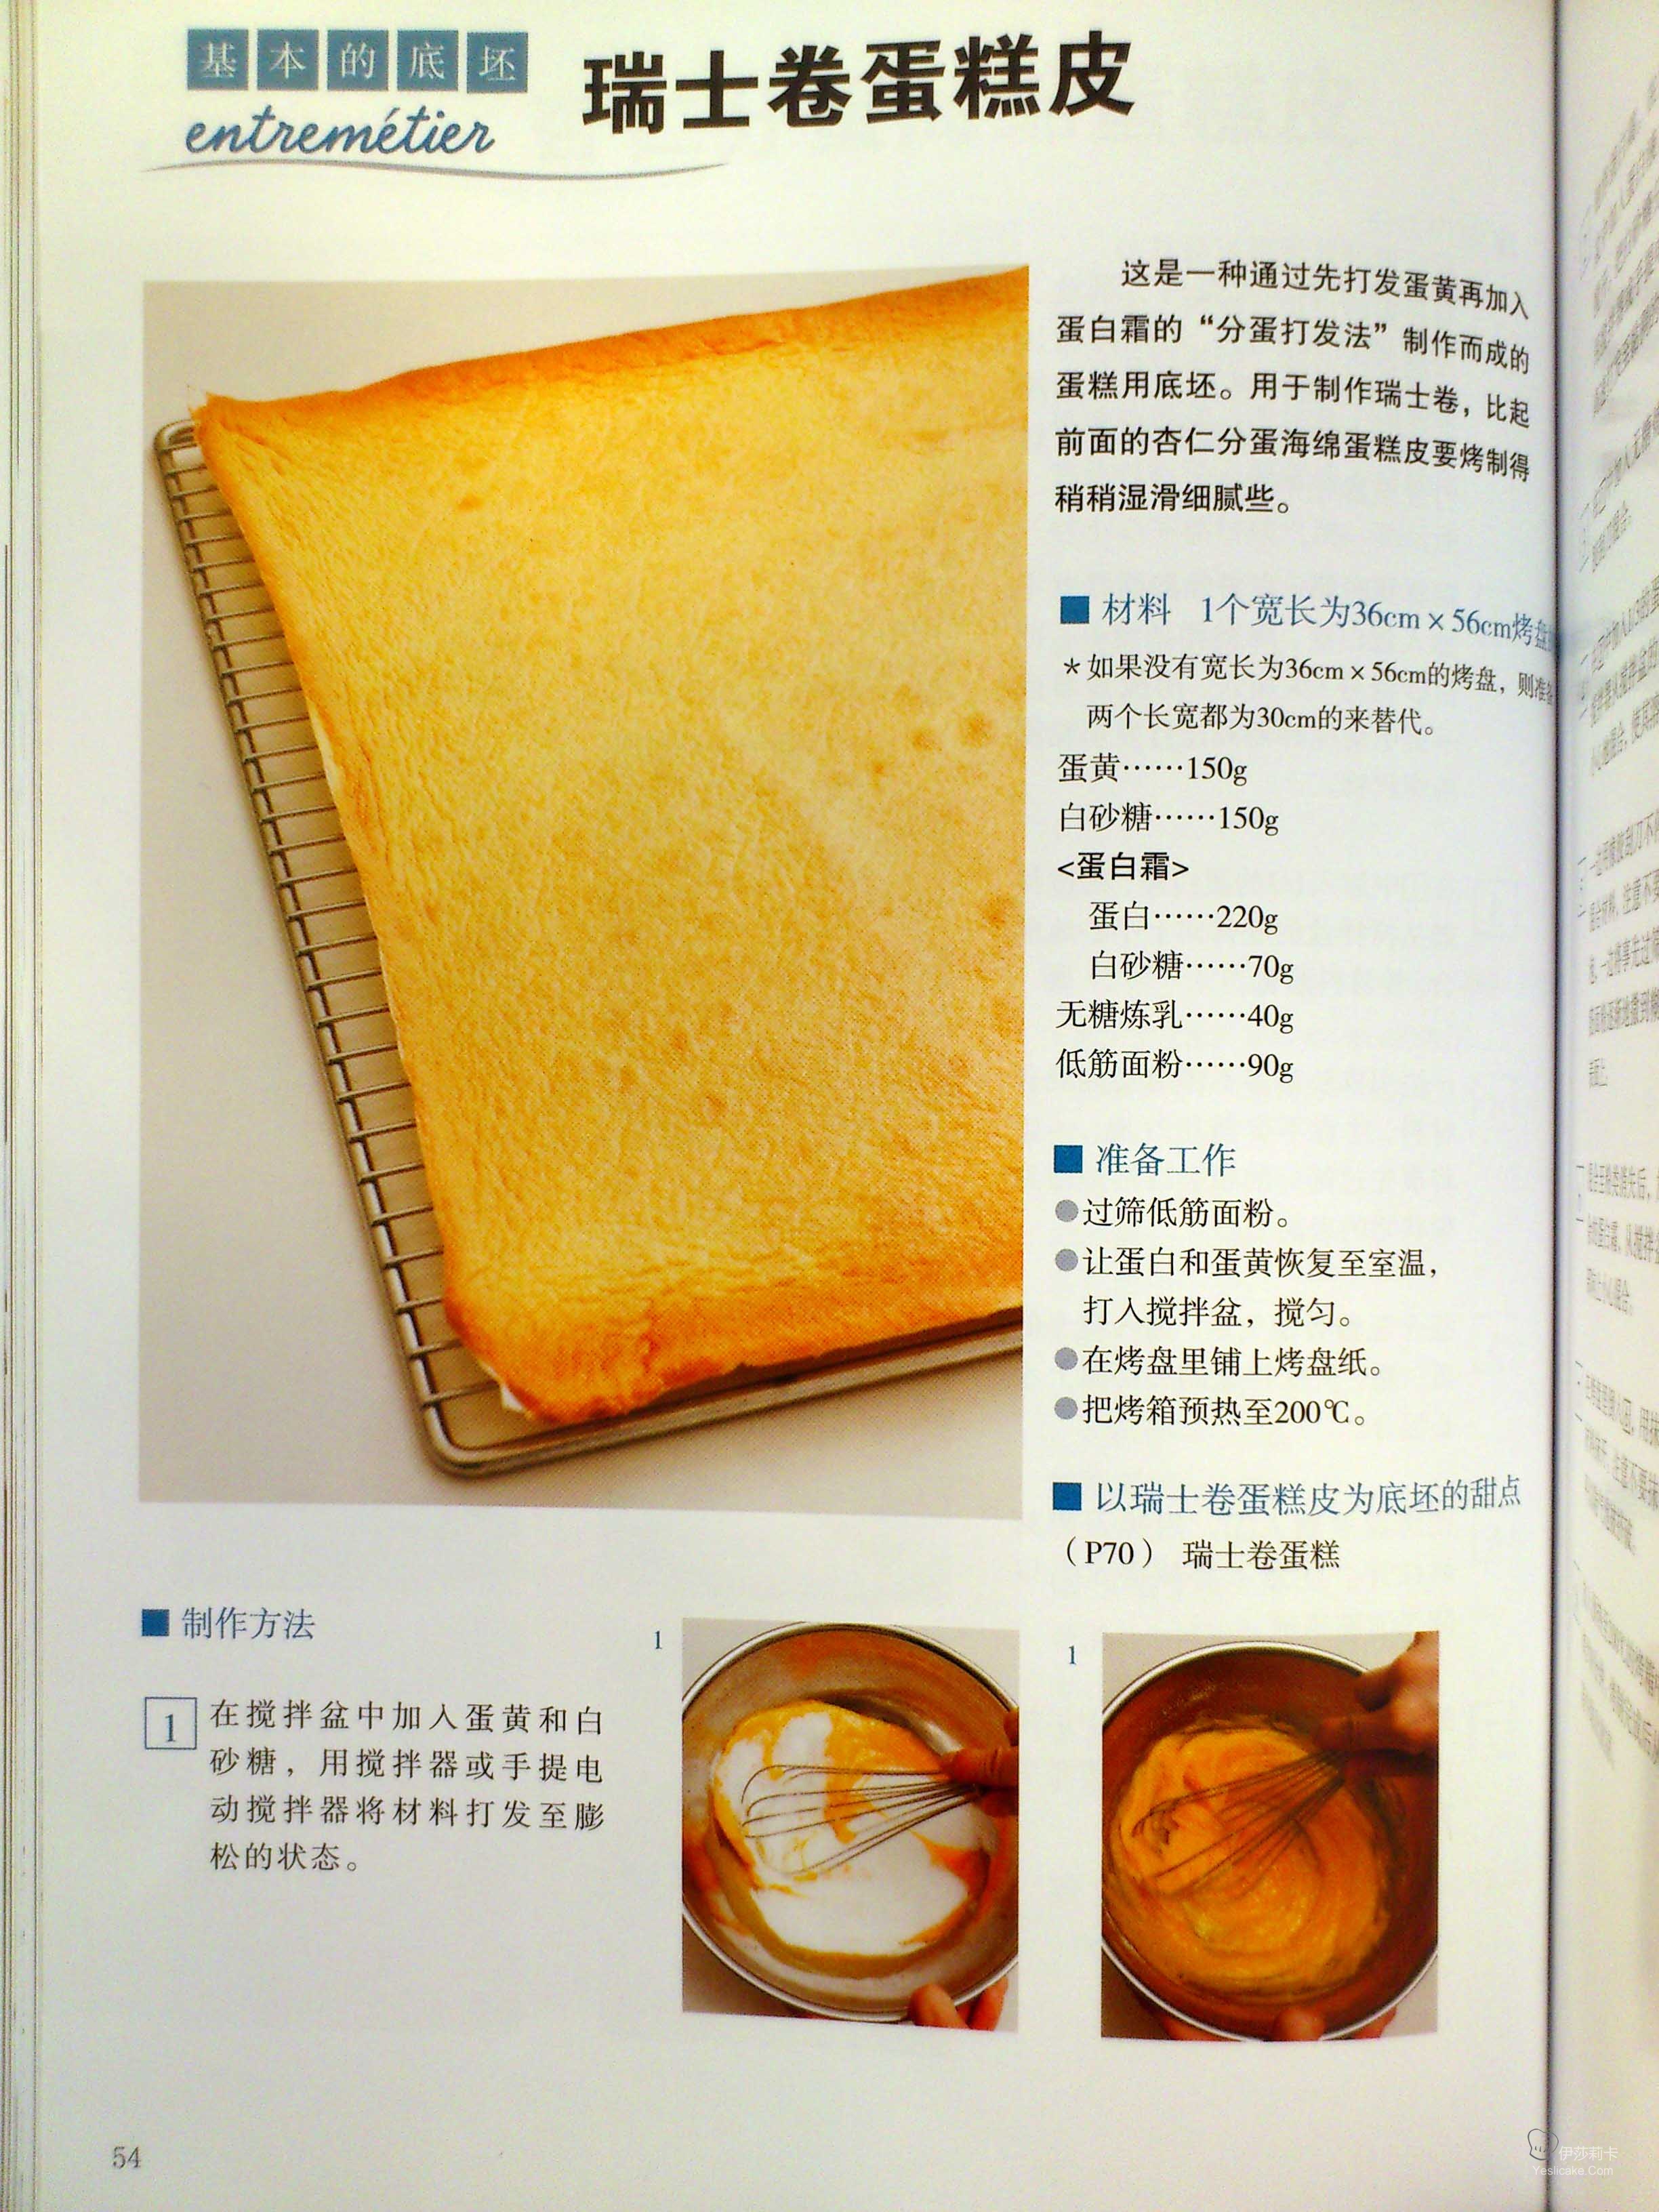 基本的底坯
entremétier
瑞士卷蛋糕皮
这是一种通过先打发蛋黄再加入
蛋白霜的“分蛋打发法”制作而成的
蛋糕用底坯。用于制作瑞士卷，比起
前面的杏仁分蛋海绵蛋糕皮要烤制得
稍稍湿滑细腻些。
■ 材料 1个宽长为36cm×56cm烤盘
＊如果没有宽长为36cm×56cm的烤盘，则准备
两个长宽都为30cm的来替代。
蛋黄……150g
白砂糖……150g
<蛋白霜>
蛋白……220g
白砂糖……70g
无糖炼乳……40g
低筋面粉……90g
■ 准备工作
●过筛低筋面粉。
●让蛋白和蛋黄恢复至室温，
打入搅拌盆，搅匀。
●在烤盘里铺上烤盘纸。
●把烤箱预热至200℃。
■ 以瑞士卷蛋糕皮为底坯的甜点
（P70） 瑞士卷蛋糕
■ 制作方法
1 在搅拌盆中加入蛋黄和白
砂糖，用搅拌器或手提电
动搅拌器将材料打发至膨
松的状态。
1
1
54
伊莎莉卡
Yeslicake.Com